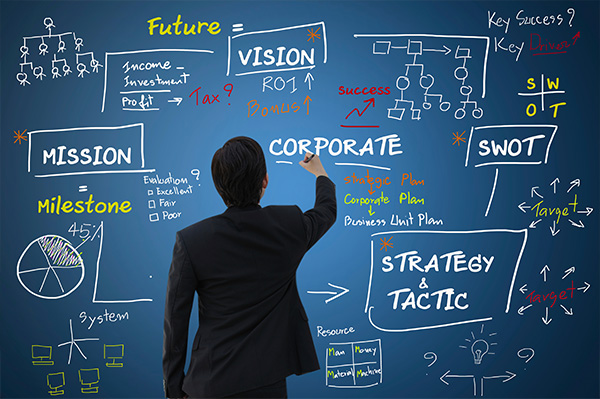 Future =
VISION
ROI ↑
Bonus ↑
Income –
Investment
Profit → Tax?
Success
Key Success?
Key Driver
S W
O T
MISSION
=
Milestone
Evaluation?
Excellent
Fair
Poor
CORPORATE
Strategic Plan
Corporate Plan
Business Unit Plan
SWOT
Target
Target
45%
System
STRATEGY
&
TACTIC
Resource
Man Money
Material Machine
? ?